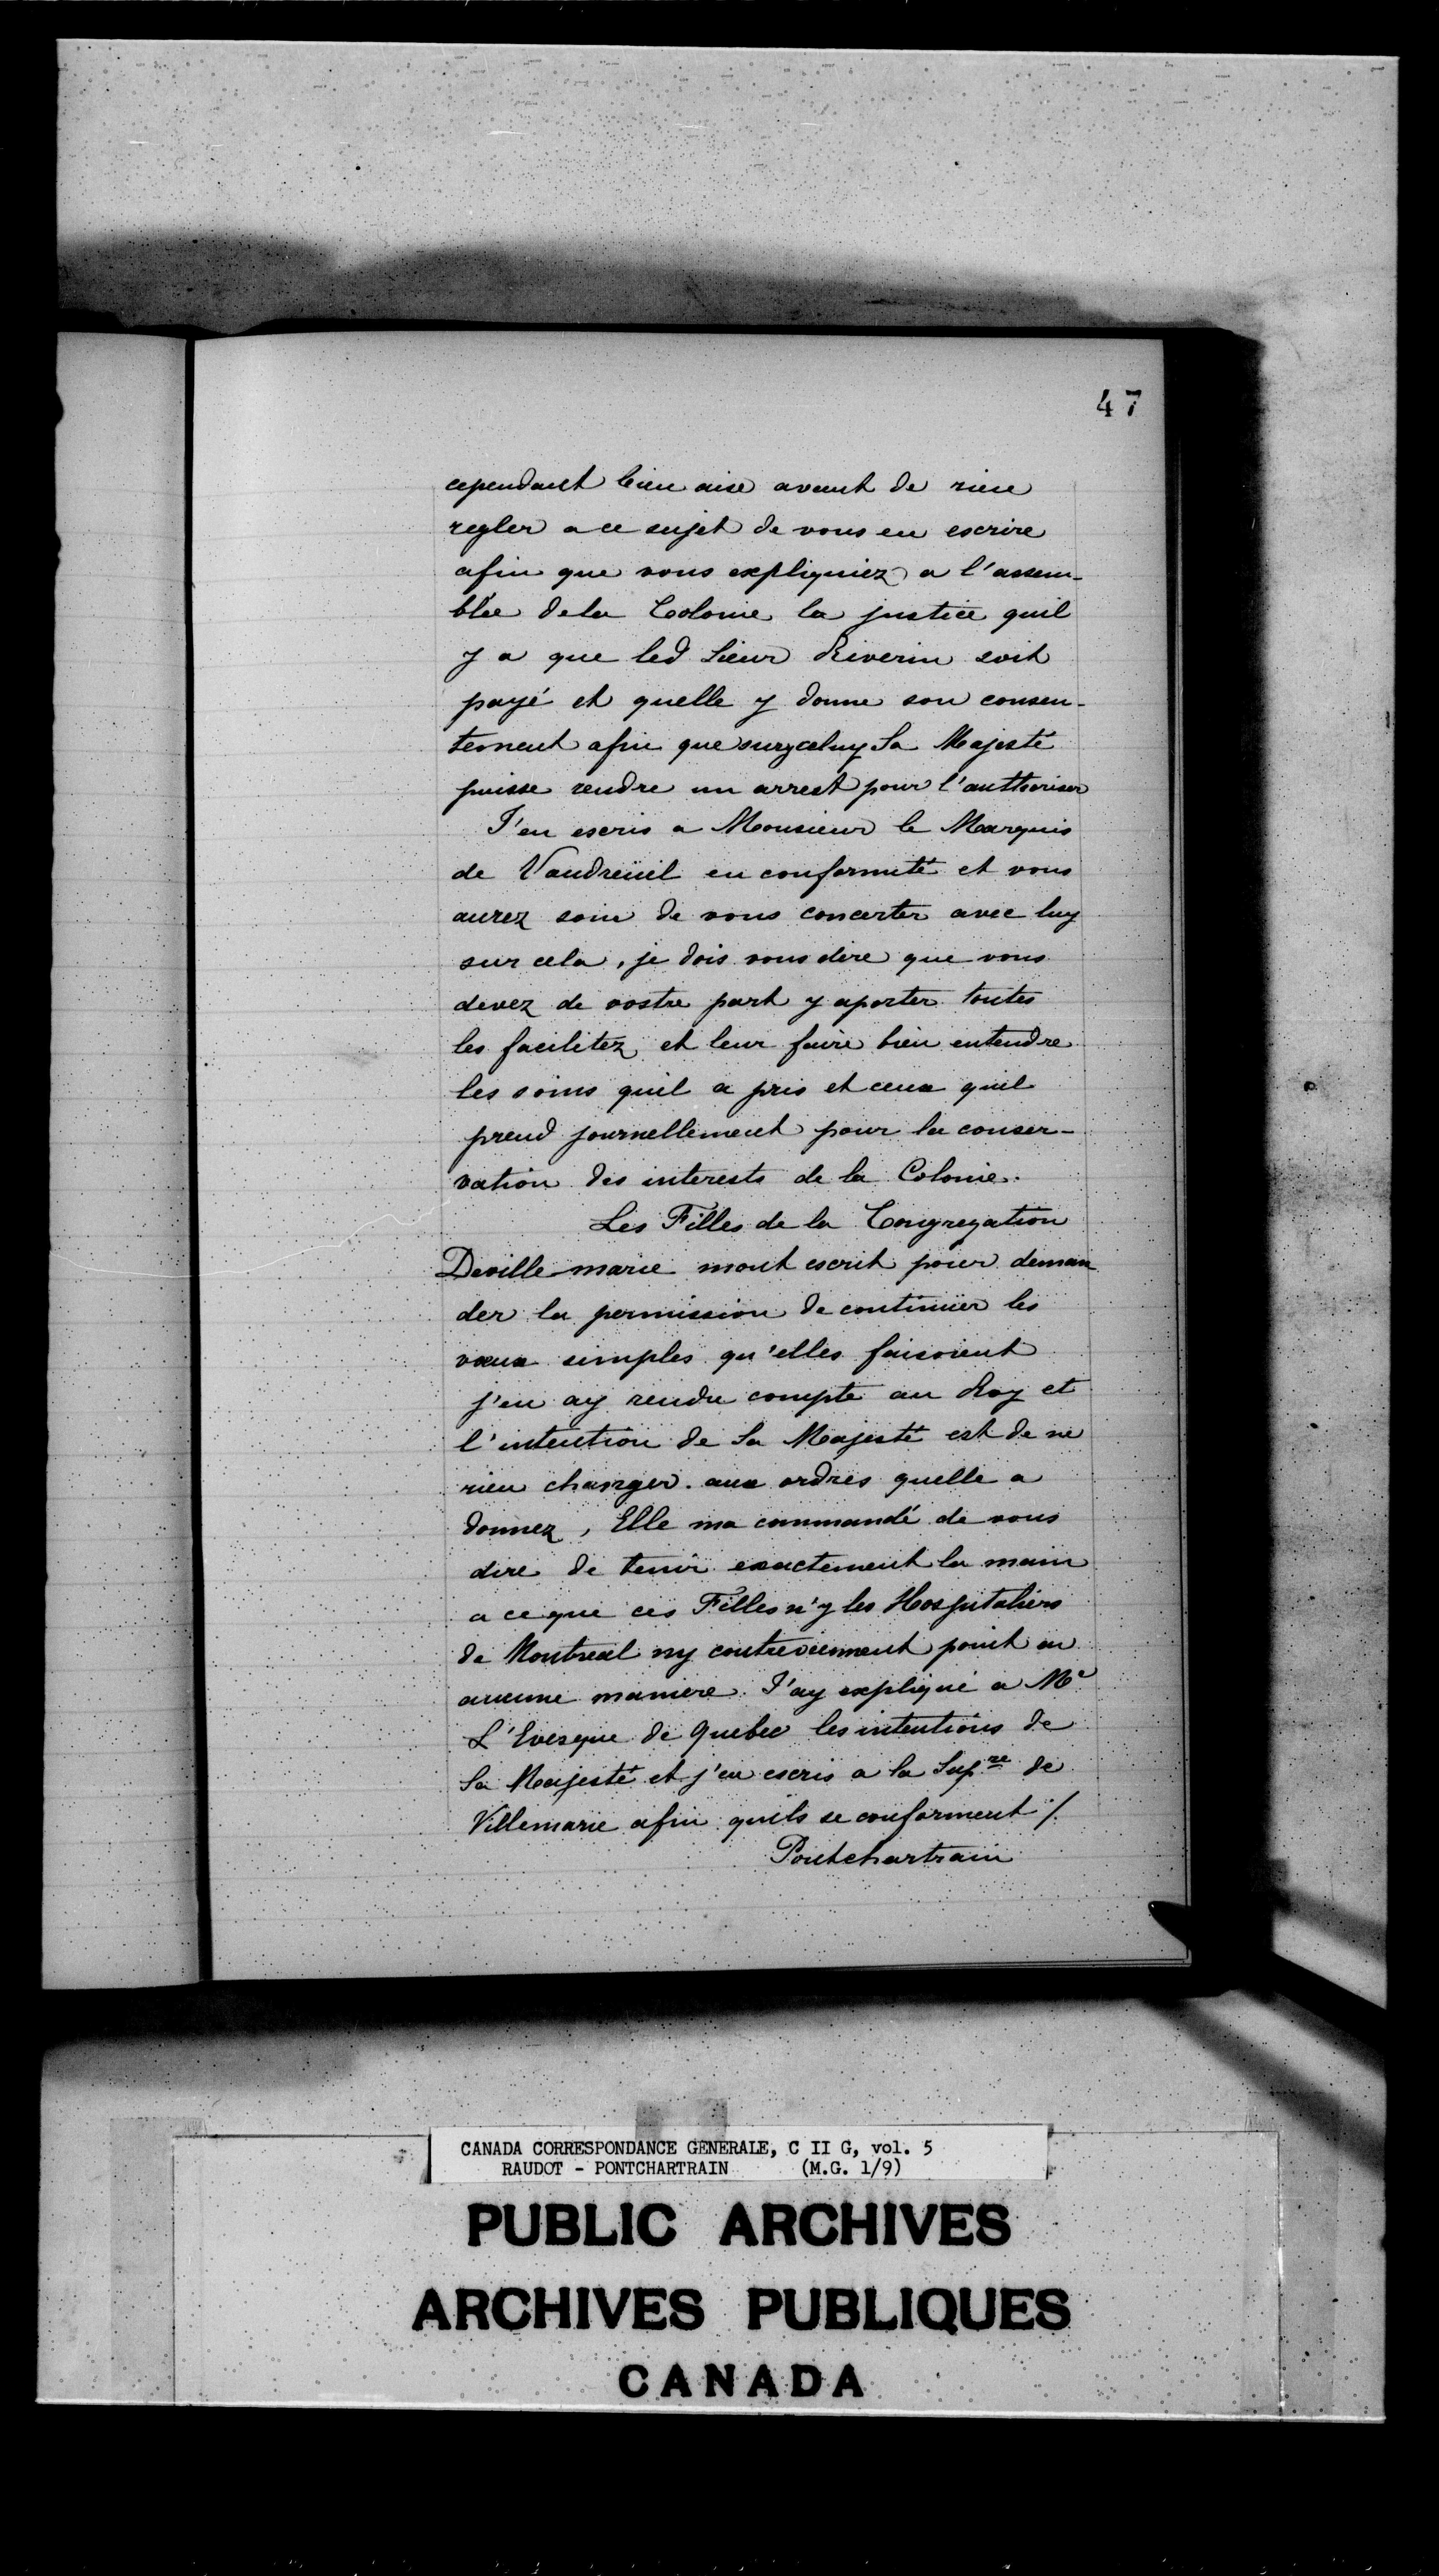 47
cependant bien aise avant de rien
regler a ce sujet de vous en escrire
afin que vous expliquiez a l'assem-
blée dela Colonie la justice quil
y a que led Sieur Riverin soit
payé et quelle y donne son consen-
tement afin que sur celuy Sa Majesté
puisse rendre un arrest pour l'authoriser
J'en escris a Monsieur le Marquis
de Vaudreüil en conformité et vous
aurez soin de vous concerter avec luy
sur cela, je dois vous dire que vous
devez de vostre part y aporter toutes
les facilitez et leur faire bien entendre
les soins quil a pris et ceux quil
prend journellement pour la conser-
vation des interests de la Colonie.
Les Filles de la Congregation
Deville-marie mont escrit pour deman
der la permission de continüer les
vœux simples qu'elles faisoient
j'en ay rendu compte au Roy et
l'intention de Sa Majesté est de ne
rien changer aux ordres quelle a
donnez, Elle ma commandé de vous
dire de tenir exactement la main
a ce que ces Filles n'y les Hospitaliers
de Montreal ny contreviennent point en
aucune maniere. J'ay expliqué a Mr
L'Evesque de Quebec les intentions de
Sa Majesté et j'en escris a la Supre de
Villemarie afin quils se conforment /.
Pontchartrain
CANADA CORRESPONDANCE GENERALE, C II G, vol. 5
RAUDOT - PONTCHARTRAIN (M.G. 1/9)
PUBLIC ARCHIVES
ARCHIVES PUBLIQUES
CANADA